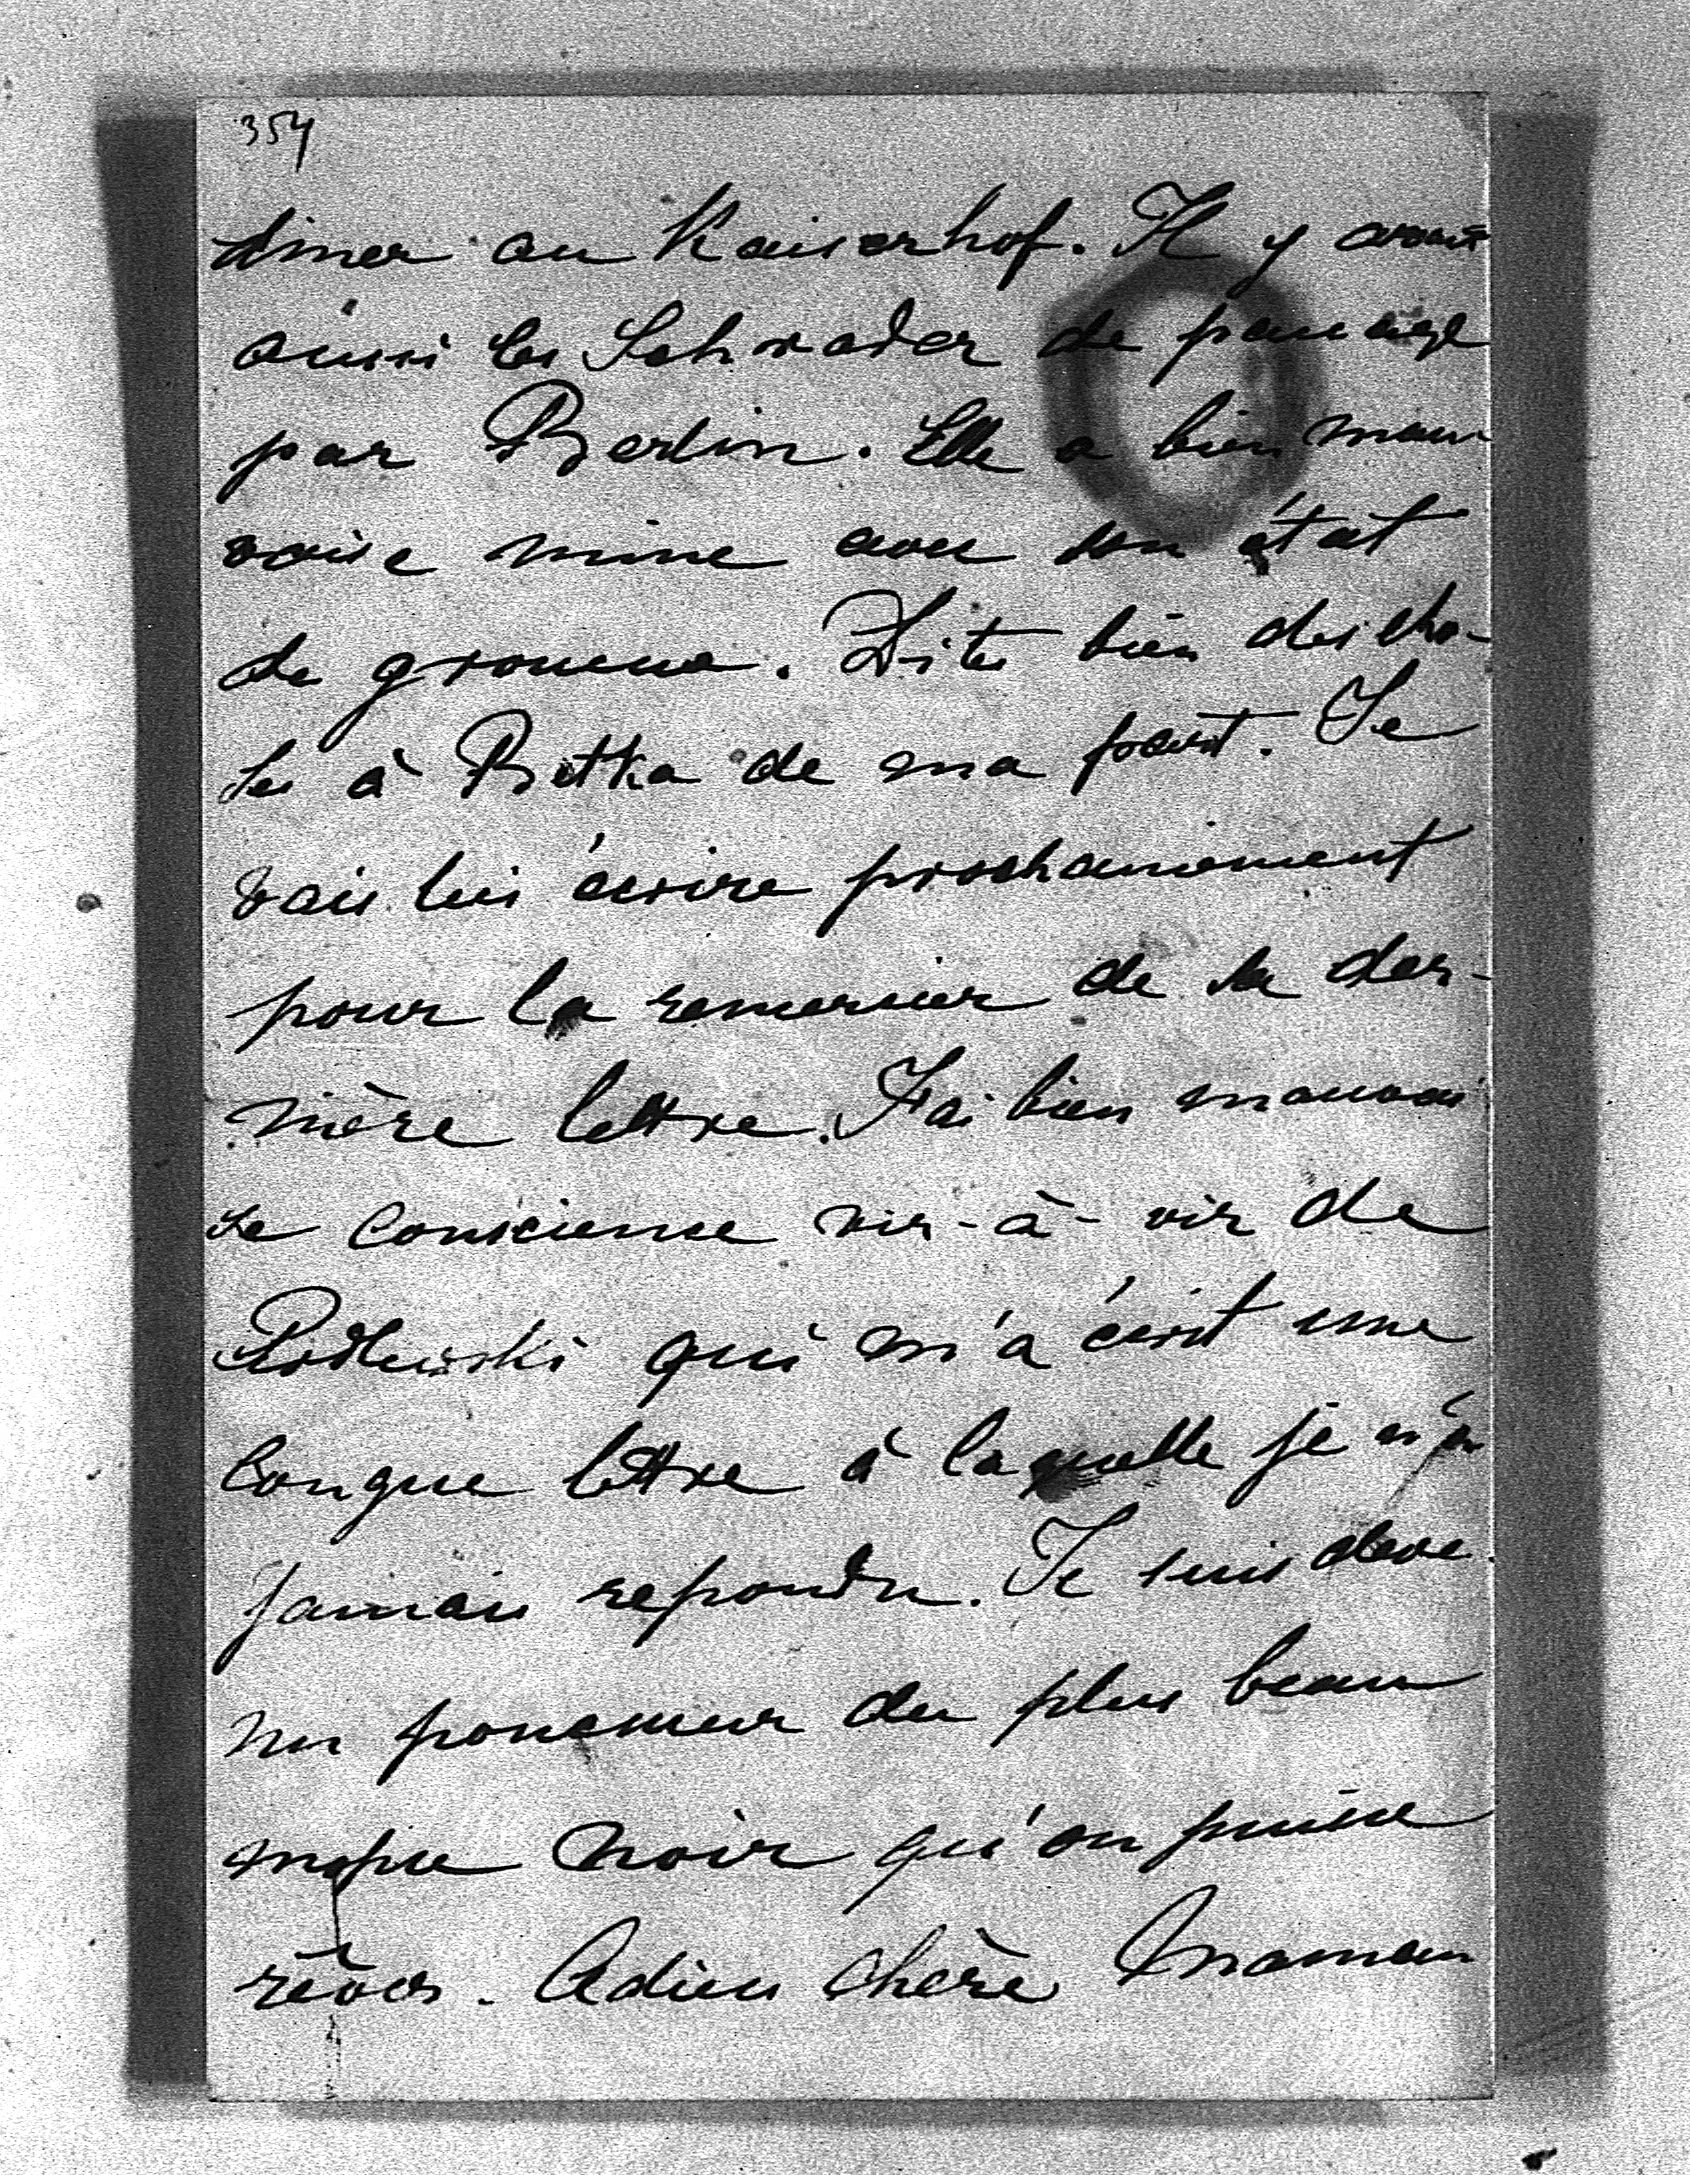 354
diner au Kaiserhof. Il y avait
aussi les Schrader de passage
par Berlin. Elle a bien mau-
vaise mine avec son état
de grossesse. Dites bien des cho-
ses à Betka de ma part. Je
vais lui écrire prochainement
pour la remercier de sa der-
nière lettre. J'ai bien mauvai
se conscience vis-à-vis de
qui m'a écrit une
longue lettre à laquelle je n'ai
jamais repondu. Je suis deve-
nu du plus beau
noir qu'on puisse
rêver. Adieu chère Maman